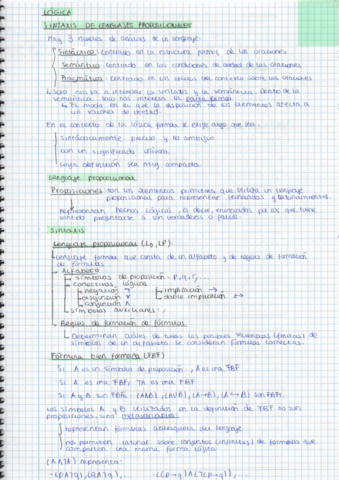 LÓGICA
SINTAXIS DE LENGUAJES PROPOSICIONALES
Hay 3 niveles de análisis de un lenguaje:
Sintáctico: centrado en la estructura formal de las oraciones
Semántico: centrado en las condiciones de verdad de las oraciones
Pragmático: centrado en los efectos del contexto sobre las oraciones
Solo nos va a interesar la sintaxis y la semántica. Dentro de la
semántica solo nos interesa la parte formal
el modo en el que la disposición de los elementos afecta a
los valores de verdad.
En el contexto de la lógica formal se exige algo que sea:
sintácticamente preciso y no ambiguo
con un significado unívoco
cuya definición sea muy compacta.
Lenguaje proposicional
Proposiciones son los elementos primitivos que utiliza un lenguaje
proposicional para representar verdades y
representan hechos lógicos, es decir, enunciados para los que tiene
sentido preguntarse si son verdaderos o falsos.
Sintaxis
Lenguaje proposicional (L0, LP)
Lenguaje formal que consta de un alfabeto y de reglas de formación
de fórmulas
ALFABETO
símbolos de proposición: p, q, r, ...
conectivas lógicas
negación ¬ implicación →
disyunción ∨ doble implicación ↔
conjunción ∧
símbolos auxiliares: ,
Reglas de formación de fórmulas
Determinan cuáles de todas las posibles secuencias (finitas) de
símbolos de un alfabeto se consideran fórmulas correctas.
Fórmula bien formada (FBF)
Si A es un símbolo de proposición, A es una FBF
Si A es una FBF, ¬A es una FBF
Si A y B son FBFs (A∧B), (A∨B), (A→B), (A↔B) son FBFs.
Los símbolos A y B utilizados en la definición de FBF no son
proposiciones, sino metavariables
representan fórmulas cualesquiera del lenguaje
no permiten razonar sobre conjuntos (infinitos) de fórmulas que
comparten una misma forma lógica
representa: